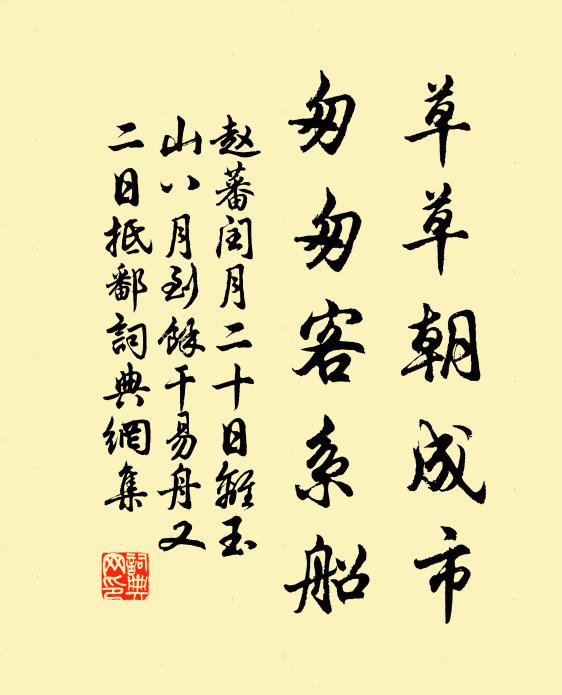 草草朝成市
匆匆客系船
赵蕃闰月二十日離玉
山八月到餘干易舟又
二日抵鄱詞典網集
詞典
网印